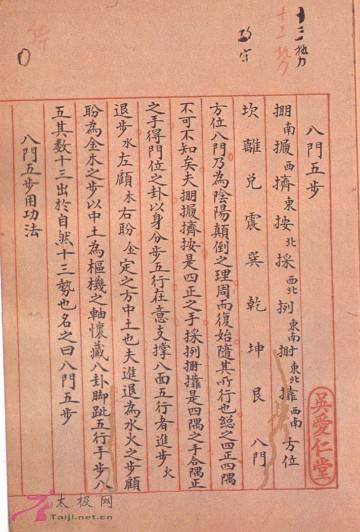 十三势
十三势
功字
八門五步
掤南㨰西擠東按北採西北挒東南掤東北攠西南方位
坎離兌震巽乾坤艮八門
方位八門乃為陰陽顛倒之理周而復始隨其所行也總之四正四隅
不可不知矣夫掤㨰擠按是四正之手採挒掤攠是四隅之手合隅正
之手得門位之卦以身分步五行在意支撐八面五行者進步火
退步水左顧木右盼金定之方中土也夫進退為水火之步顧
盼為金木之步以中土為樞機之軸懷藏八卦腳跐五行手步八
五其數十三出於自然十三勢也名之曰八門五步
八門五步用功法
吳愛仁堂
太极网
Taiji.net.cn